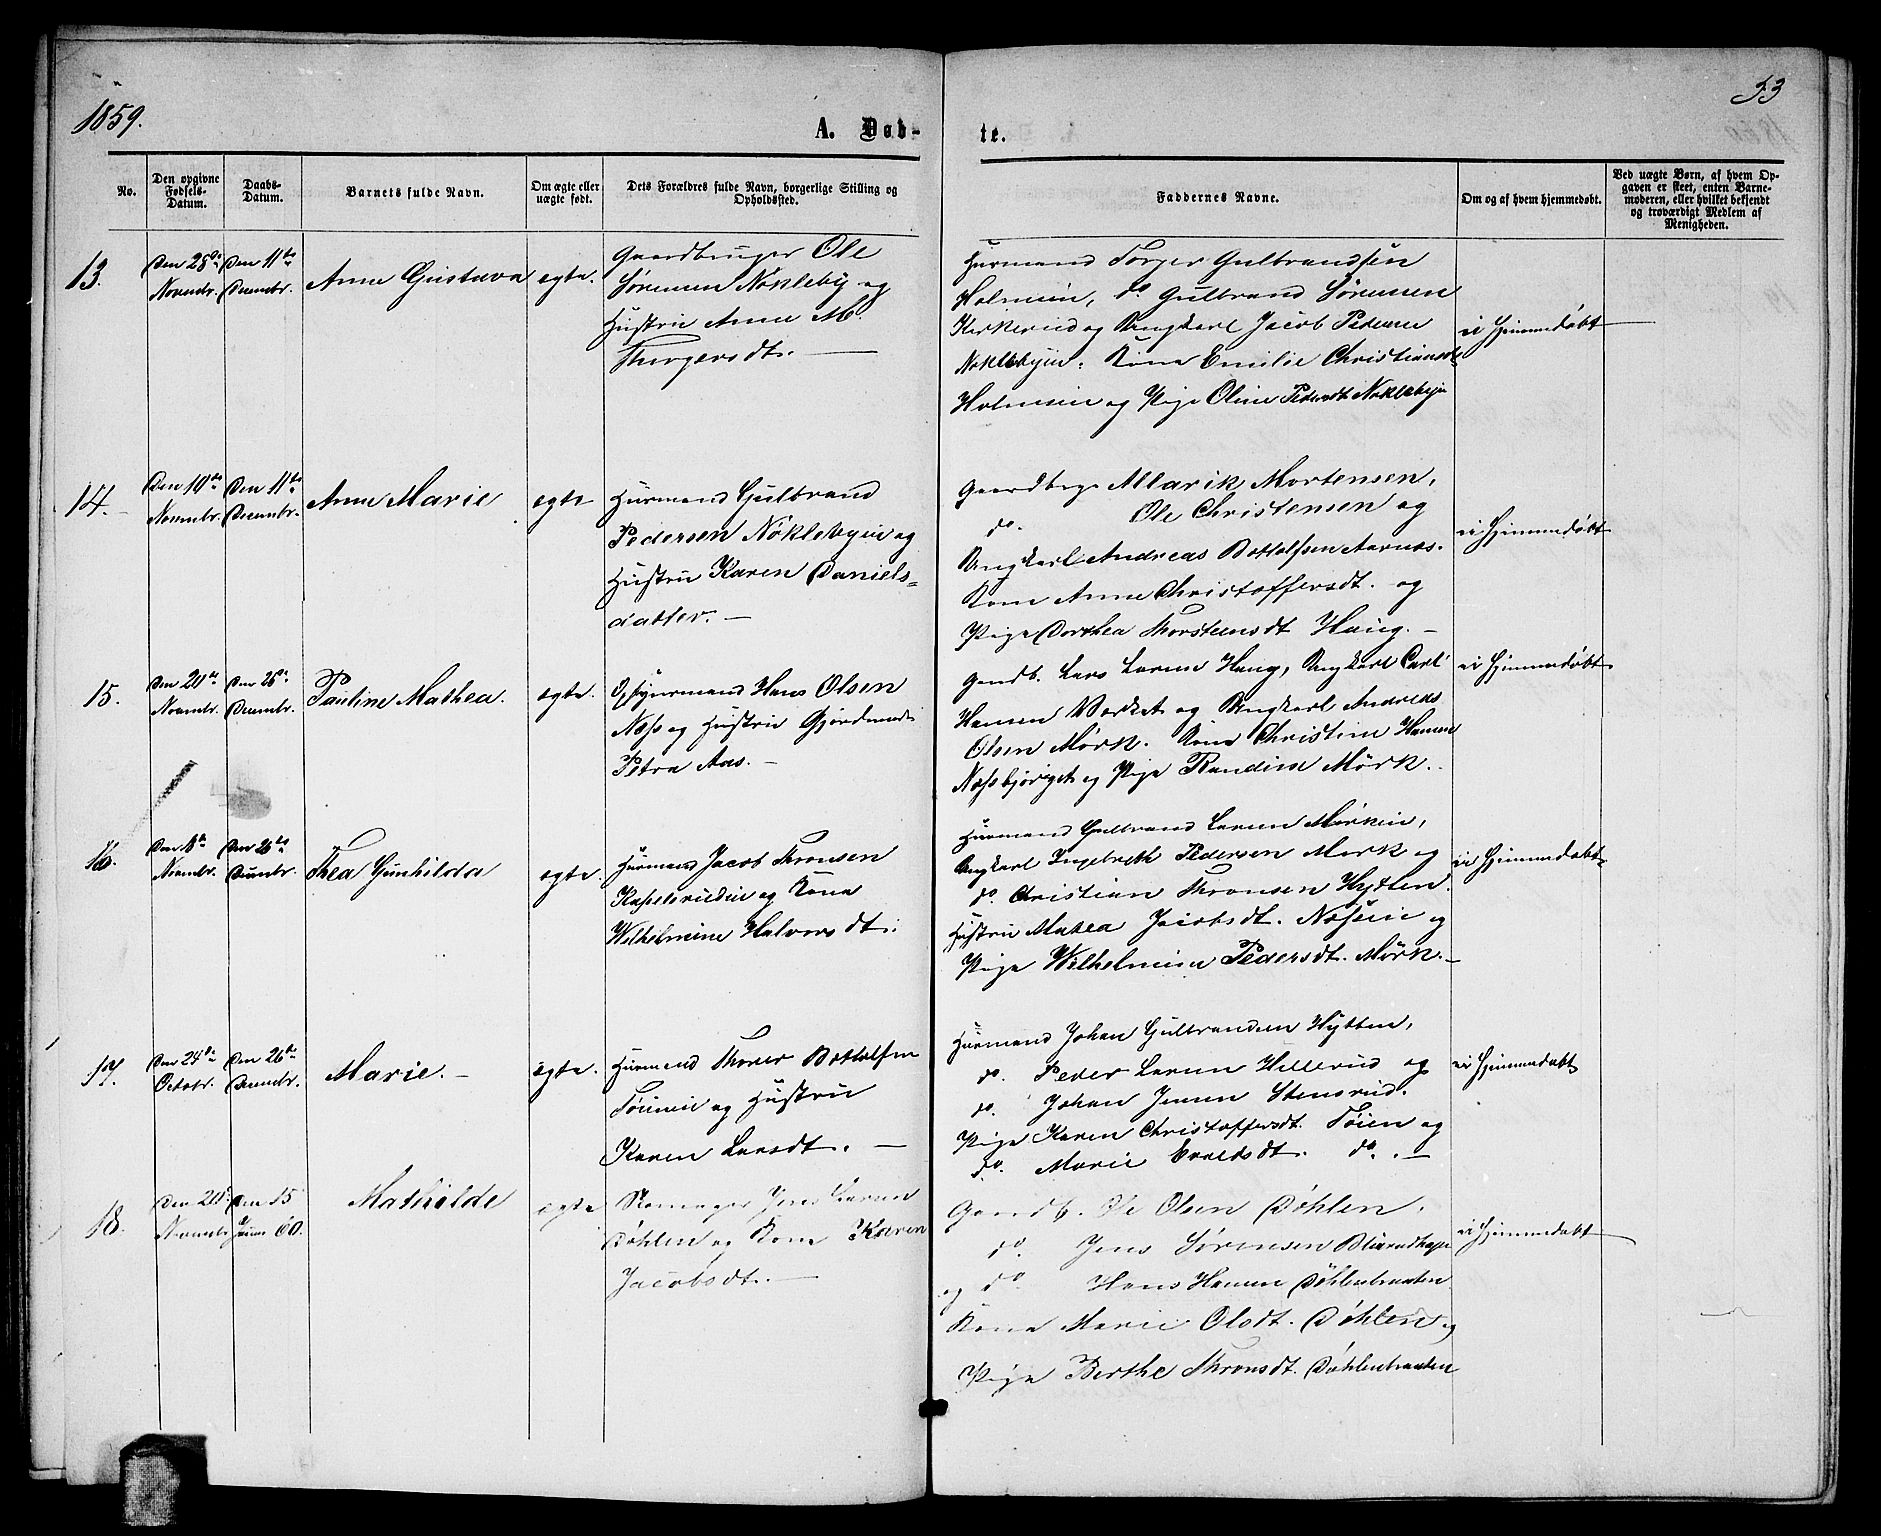 1859.
53
A. Døb-
te.
No.
Den opgivne Fødsels-Datum.
Daabs-Datum.
Barnets fulde Navn.
Om ægte eller uægte født.
Dets Forældres fulde Navn, borgerlige Stilling og Opholdssted.
Faddernes Navne.
Om og af hvem hjemmedøbt.
Ved uægte Børn, af hvem Opgaven er skeet, enten Barnemoderen, eller hvilket bekjendt og troværdigt Medlem af Menigheden.
13.
Den 28de Novembr.
Den 11te Decembr.
Anne Gustava
egte.
Gaardbruger Ole
Sørensen Nøkleby og
Hustru Anne M.
Thorgersdt.
Huusmand Torger Gulbrandsen
Holmein, do Gulbrand Sørensen
Kirkerud og Ungkarl Jacob Pedersen
Noklebyein. Kone Emilie Christiansdt
Holmein og Pige Oline Pedersdt Noklebyein
ei Hjemmedøbt
14.
Den 10de Novembr.
Den 11te Decembr.
Anne Marie
egte
Huusmand Gulbrand
Pedersen Nøklebyein og
Hustru Karen Daniels-
datter.
Gaardbrgr Allarik Mortensen,
do. Ole Christensen og
Ungkarl Andreas Bottolfsen Aarnes.
Kone Anne Christoffersdt. og
Pige Dorthea Thorsteensdt Haug.
ei Hjemmedøbt
15.
Den 20de Novembr.
Den 26de Decembr.
Pauline Mathea.
egte.
Hans Olsen
Næss og Hustru
Petra Aas.
Gaardb. Lars Larsen Haug, Ungkarl Carl
Hansen Værket og Ungkarl Andreas
Olsen Mørk. Kone Christine Hansen
og Pige Randine Mørk.
ei Hjemmedøbt
16.
Den 8de Novembr.
Den 26de Decembr.
Thea Gunhilda
egte.
Huusmand Jacob Thronsen
og Kone
Wilhelmine Halvorsdt.
Huusmand Gulbrand Larsen Mørkein,
Ungkarl Ingebreth Pedersen Mork og
do Christian Thronsen Hytten.
Hustru Mathea Jacobsdt. og
Pige Wilhelmine Pedersdt. Mørk.
ei Hjemmedøbt
17.
Den 24de Octobr.
Den 26de Decembr.
Marie.
egte.
Huusmand Thorer Bottolfsen
og Hustru
Karen Larsdt.
Huusmand Johan Gulbrandsen Hytten,
do. Peder Larsen Hillerud og
do. Johan Jensen Stensrud.
Pige Karen Christoffersdt. Tøien og
do. Marie dt. do.
ei Hjemmedøbt
18.
Den 20de Novembr.
Den 15 60.
Mathilde
egte
Jens Larsen
Døhlen og Kone Karen
Jacobsdt.
Gaardb. Ole Olsen Døhlen,
do. Jens Sørensen
og do. Hans Hansen Døhlenbraaten
Kone Marie Olsdt. Døhlen og
Pige Berthe Thronsdt. Døhlenbraaten
ei Hjemmedøbt